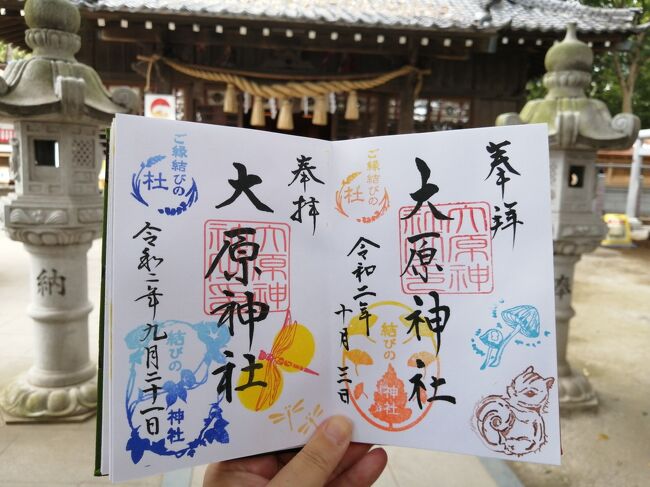 奉拝
大原神社
大原神社
令和二年十月三日
ご縁結びの
社
結びの
神社
奉拝
大原神社
大原神社
令和二年九月二十一日
ご縁結びの
社
結びの
神社
納
奉